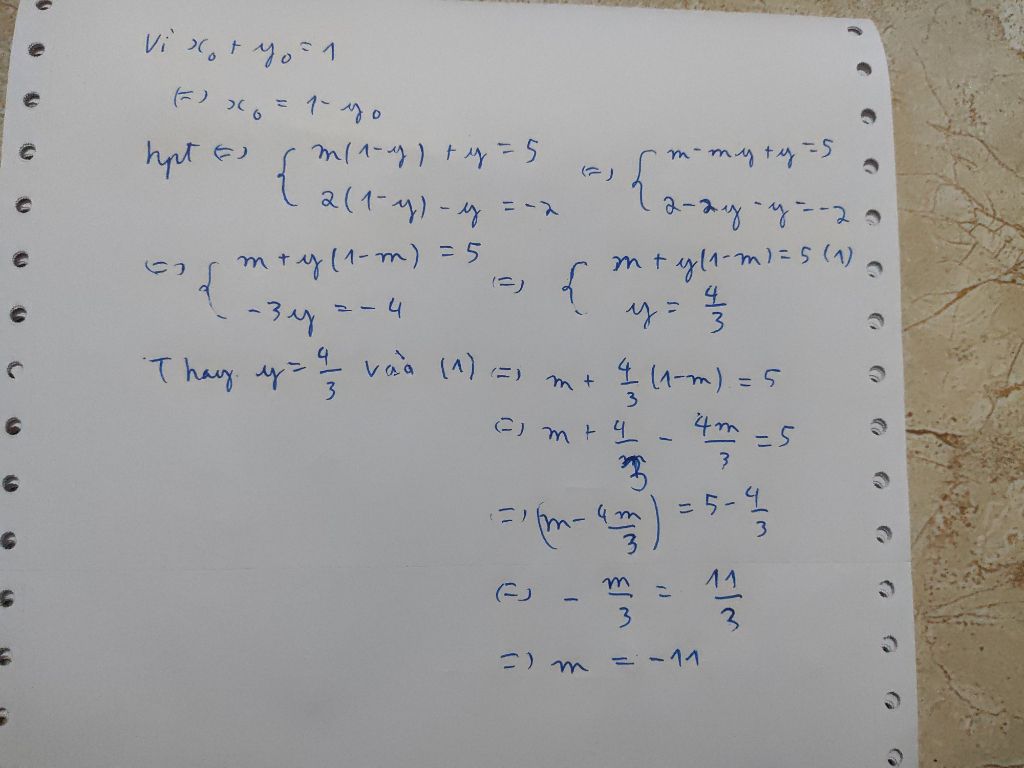 Vì x₀ + y₀ = 1
(=) x₀ = 1 - y₀
hpt (=) { m(1-y) + y = 5 (=) { m - my + y = 5
2(1-y) - y = -2 2 - 2y - y = -2
(=) { m + y(1-m) = 5 (=) { m + y(1-m) = 5 (1)
-3y = -4 y = 4/3
Thay y = 4/3 vào (1) (=) m + 4/3 (1-m) = 5
(=) m + 4/3 - 4m/3 = 5
(=) (m - 4m/3) = 5 - 4/3
(=) - m/3 = 11/3
=) m = -11